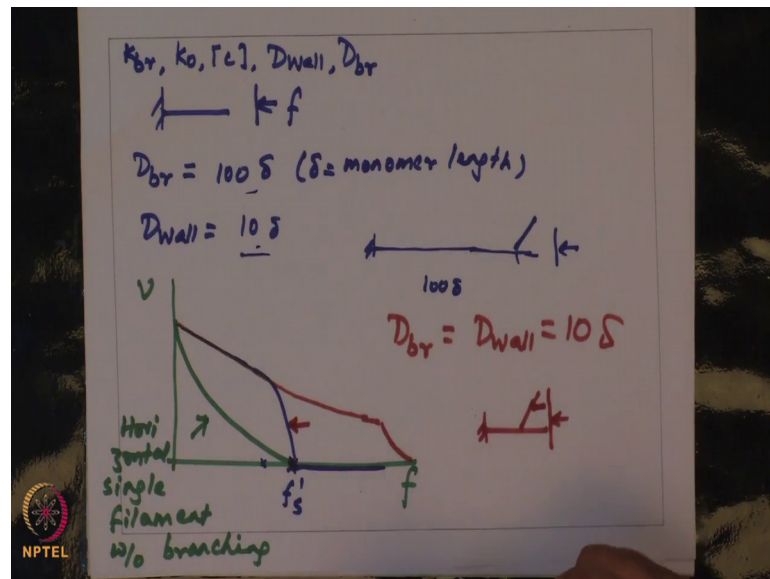 Kbr, K0, [c], Dwall, Dbr
f
Dbr = 100 δ (δ = monomer length)
Dwall = 10 δ
100 δ
V
Dbr = Dwall = 10 δ
Hori
zontal
single
filament
w/o branching
fs'
f
NPTEL